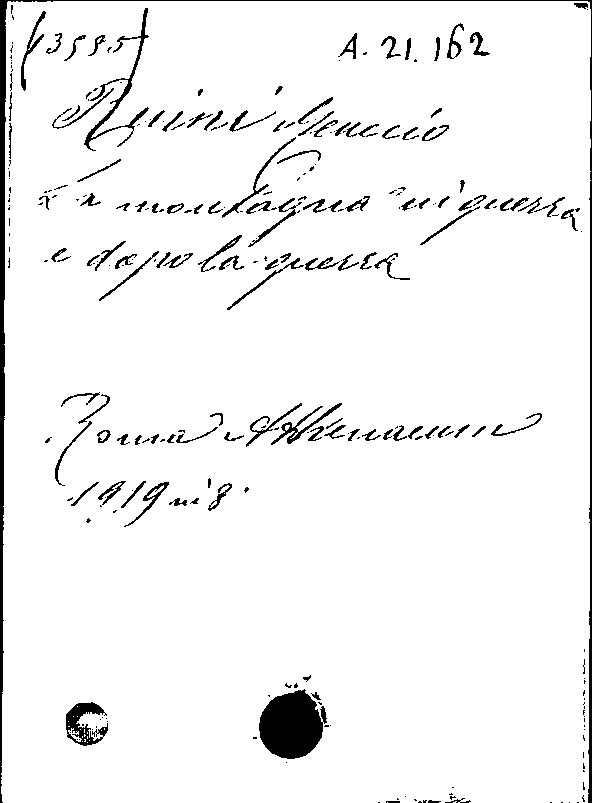 (13595)
A. 21. 162
Ruini Meuccio
La montagna in guerra
e dopo la guerra
Roma Athenaeum
1919 in 8.